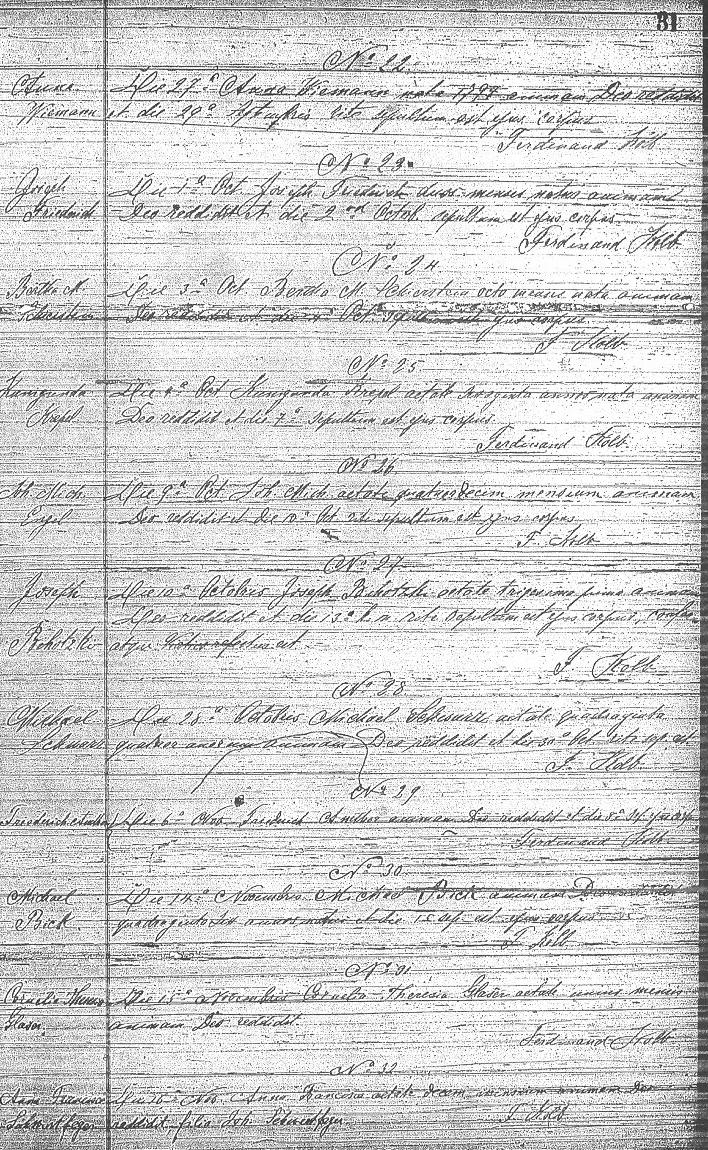 31
No 22
Anna Die 27a Anna Wiemann nata 1797 animam Deo reddidit
Wiemann et die 29a Septembris rite sepultum est ejus corpus
Ferdinand Kolb
No 23.
Joseph Die 1a Oct. Joseph Friedrich duos menses natus animam
Friedrich Deo reddidit et die 2a Octob. sepultum est ejus corpus
Ferdinand Kolb
No 24
Bertha M. Die 3a Oct Bertha M. octo menses nata animam
Deo reddidit et die Oct. ejus corpus.
F Kolb
No 25
Kunigunda Die Oct Kunigunda aetate annos nata animam
Deo reddidit et die 7a sepultum est ejus corpus.
Ferdinand Kolb.
No 26
Joh. Mich. Die 9a Oct. Joh. Mich. aetate quatuordecim mensium animam
Engel Deo reddidit et die Oct rite sepultum est ejus corpus
F. Kolb
No 27
Joseph Die 10a Octobris Joseph aetate trigesimo primo animam
Deo reddidit et die 13a h. a. rite sepultum est ejus corpus,
atque refectus est.
F Kolb
No 28
Michael Die 28a Octobris Michael Schwarz, aetate quadraginta
Schwarz quatuor annorum animam Deo reddidit et die 30a Oct. rite sep. est
F. Kolb.
No 29
Friederich Die 6a Nov. Friedrich animam Deo reddidit et die 8a sep. ejus corp.
Ferdinand Kolb
No 30
Michael Die 14a Novembris Michael Bick animam Deo reddidit
Bick. quadraginta sex annos natus et die 15 sep. est ejus corpus
F Kolb
No 31
Cornelia Die 15a Novembris Cornelia Theresia Glaser aetate unius mensis
Glaser. animam Deo reddidit.
Ferdinand Kolb
No 32
Anna Francisca Die 16a Nov. Anna Francisca aetate decem mensium animam Deo
reddidit, filia Joh.
F. Kolb